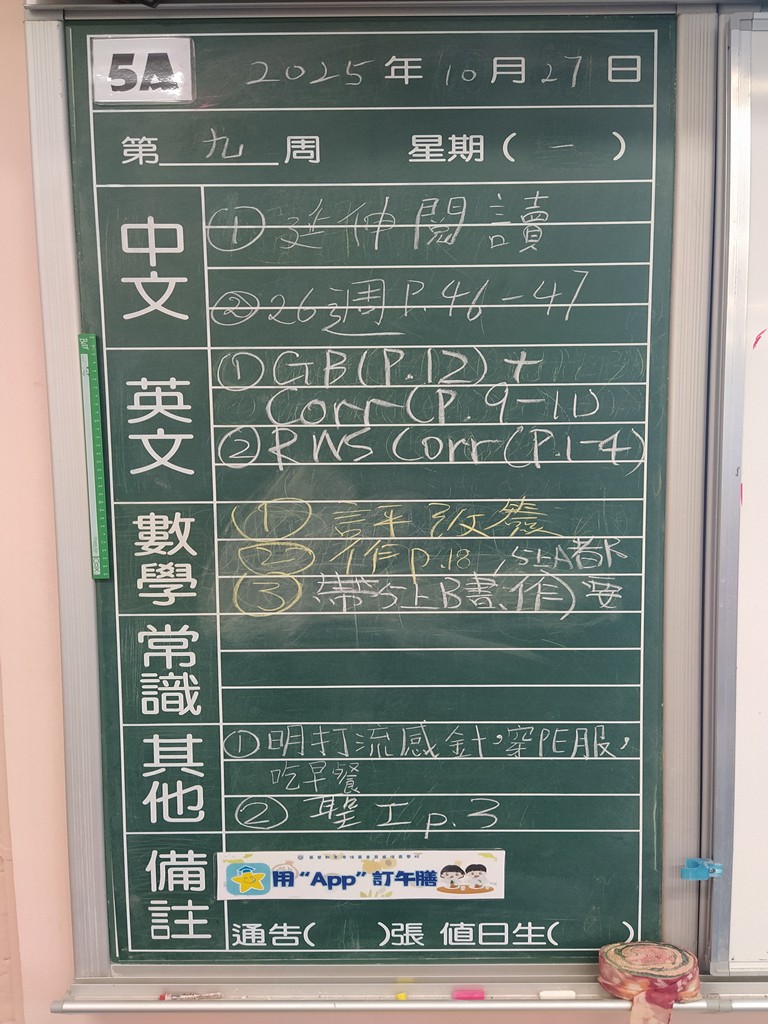 5A 2025年10月27日
第 九 周 星期( 一 )
中文
① 延伸閱讀
② 26週 P.46-47
英文
① GB(P.12) +
Corr(P.9-11)
② RWS Corr(P.1-4)
數學
① 評改簽
② 作 p.18, 5上A書
③ 帶5上B書、作) 要
常識
其他
① 明打流感針,穿PE服,
吃早餐
② 聖工 p.3
備註
用“App”訂午膳
通告( )張 值日生( )